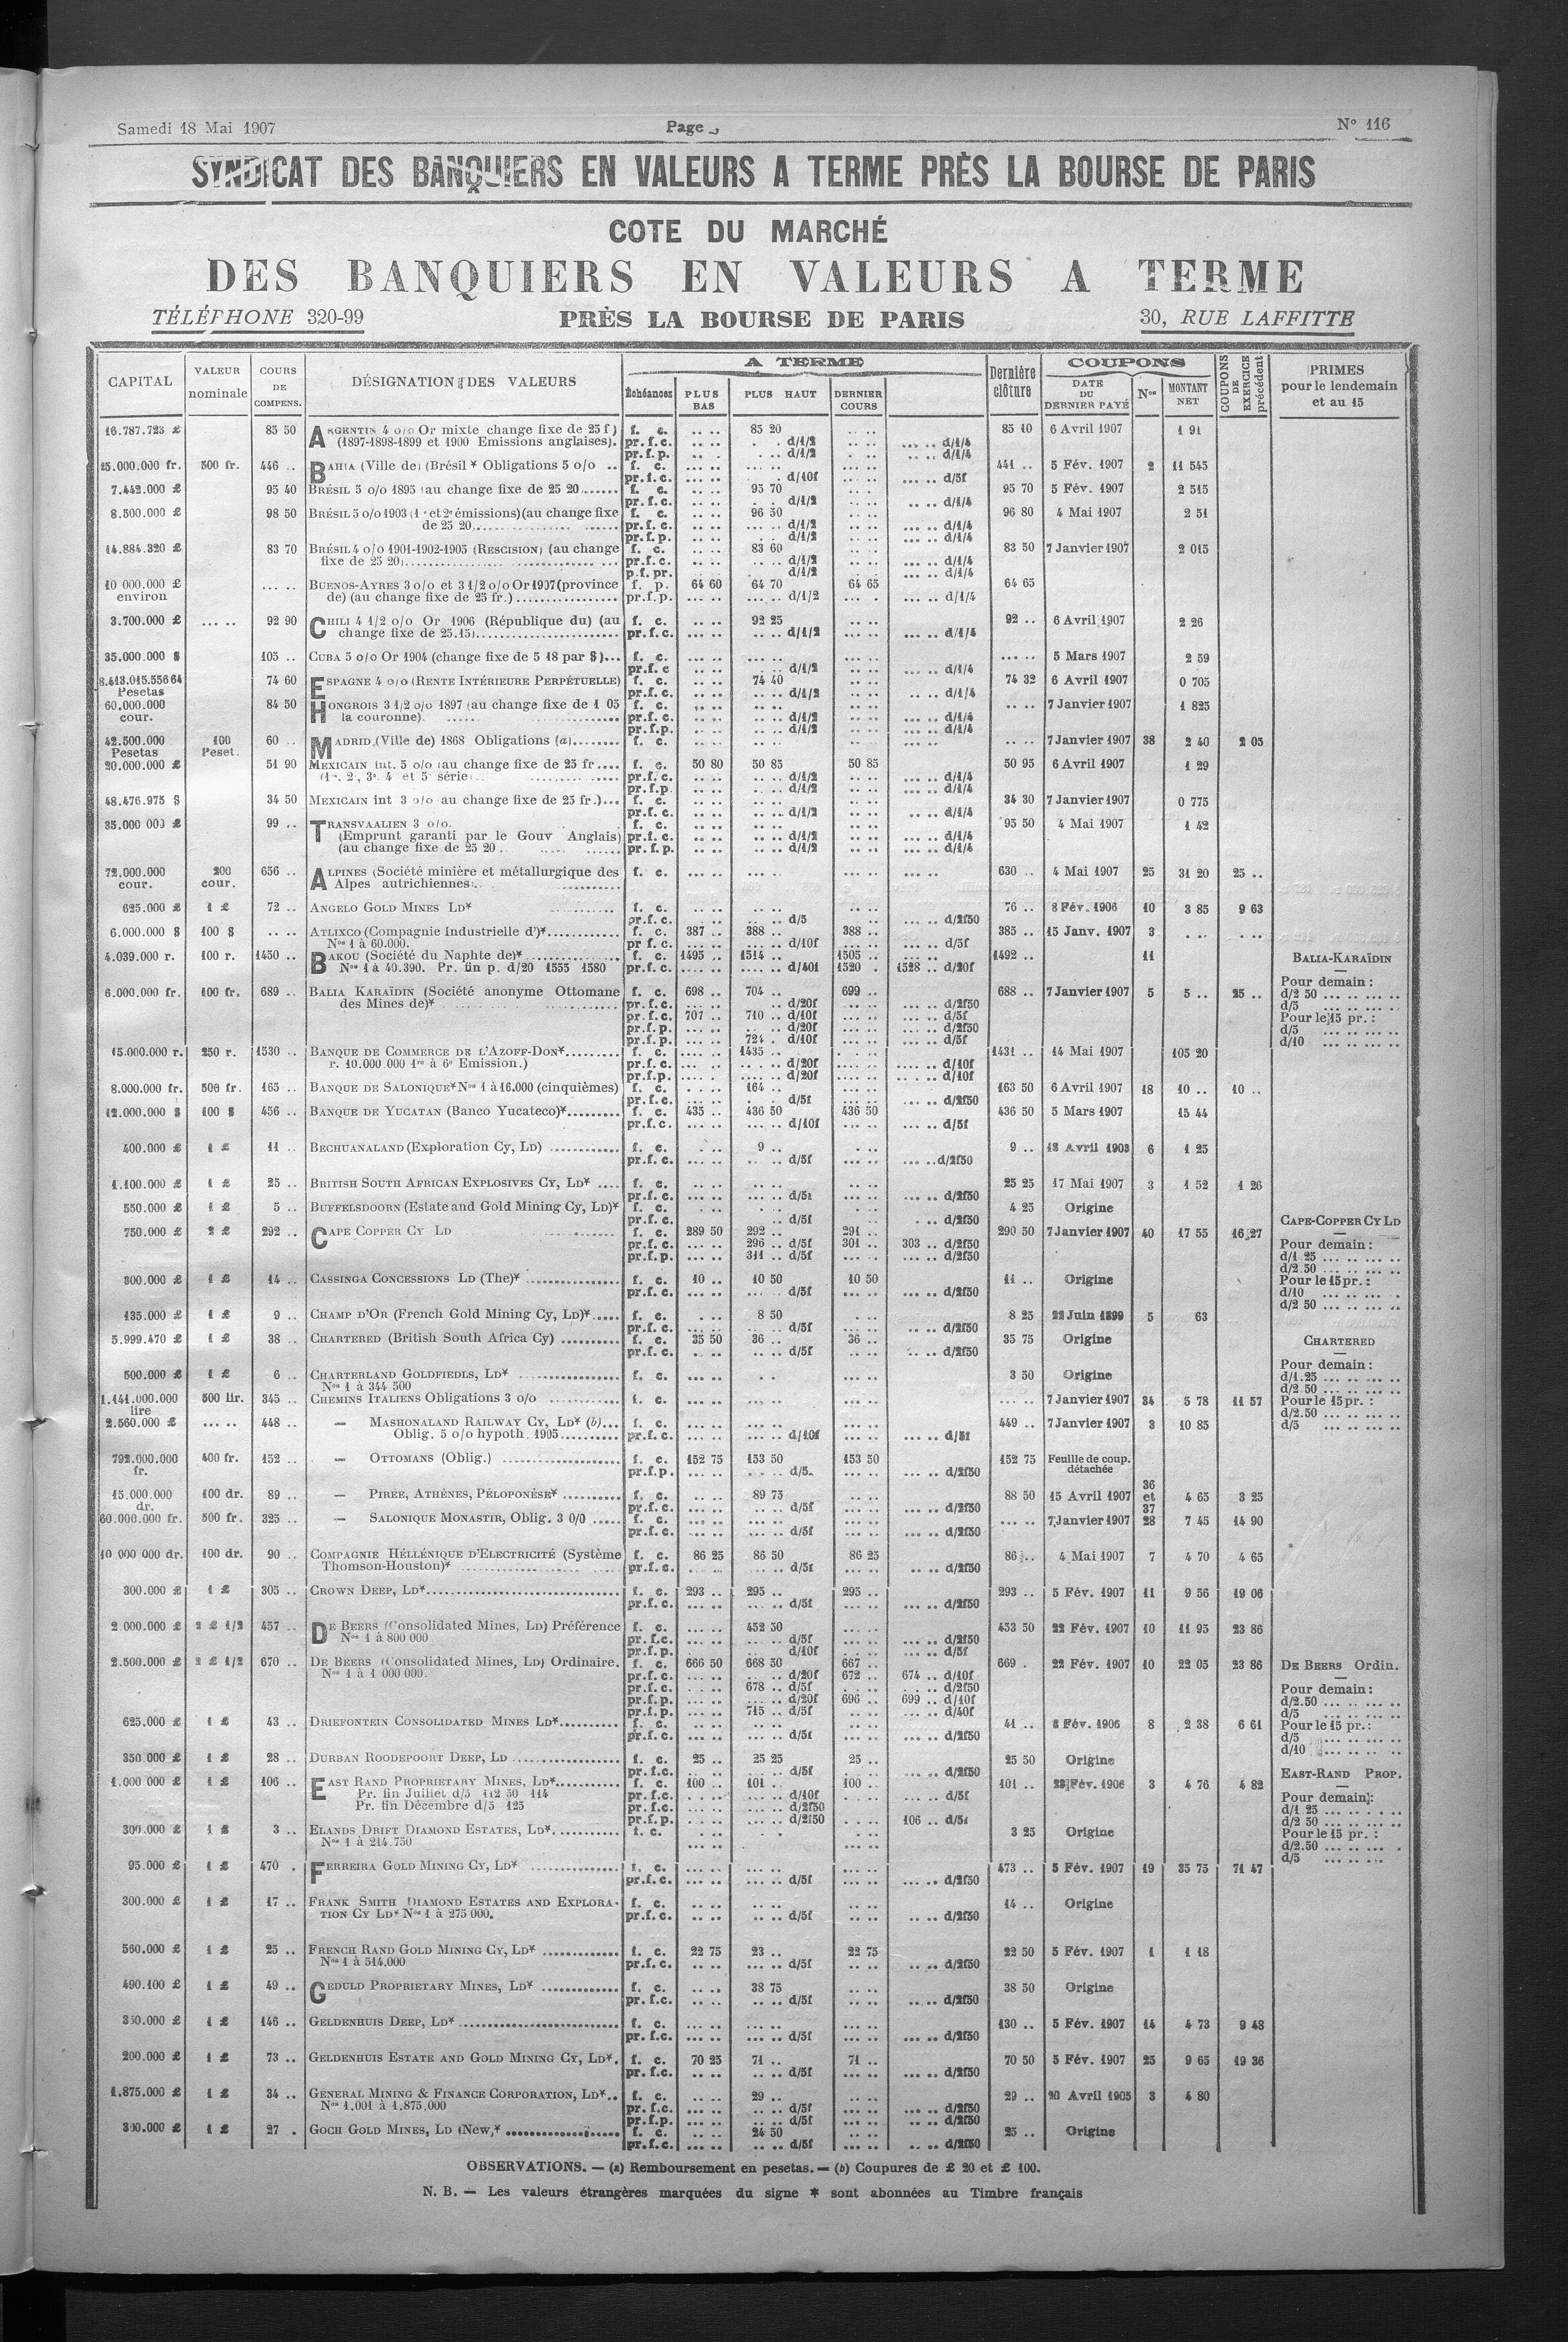 Samedi 18 Mai 1907 Page N° 116
SYNDICAT DES BANQUIERS EN VALEURS A TERME PRÈS LA BOURSE DE PARIS
COTE DU MARCHÉ
DES BANQUIERS EN VALEURS A TERME
TÉLÉPHONE 320-99 PRÈS LA BOURSE DE PARIS 30, RUE LAFFITTE
CAPITAL VALEUR nominale COURS DE COMPENS. DÉSIGNATION DES VALEURS A TERME Échéances PLUS BAS PLUS HAUT DERNIER COURS Dernière clôture COUPONS DATE DU DERNIER PAYÉ Nos MONTANT NET COUPONS DE EXERCICE précédent PRIMES pour le lendemain et au 15
16.787.723 £ 85 50 ARGENTIN 4 o/o Or mixte change fixe de 25 f) f. c. .. .. 85 20 .. .. 85 10 6 Avril 1907 1 91
(1897-1898-1899 et 1900 Emissions anglaises). pr.f.c. .. .. . .. d/1/2 .. .. ... .. d/1/4
pr.f.p. .. . . .. d/1/2 .. . .. .. d/1/4
25.000.000 fr. 500 fr. 446 .. BAHIA (Ville de) (Brésil * Obligations 5 o/o .. f. c. ... .. ... .. ... .. 441 .. 5 Fév. 1907 2 11 545
pr.f.c. .. .. . . d/10f .. . ... .. d/5f
7.442.000 £ 95 40 BRÉSIL 5 o/o 1895 (au change fixe de 25 20...... f. c. .. .. 95 70 .. . 95 70 5 Fév. 1907 2 515
pr.f.c. .. .. . . d/1/2 .. .. .. .. d/1/4
8.500.000 £ 98 50 BRÉSIL 5 o/o 1903 (1re et 2e émissions)(au change fixe f. c. .. .. 96 50 .. . 96 80 4 Mai 1907 2 51
de 25 20............. ...... pr.f.c. .. .. ... .. d/1/2 .. .. ... .. d/1/4
pr.f.p. .. .. . .. d/1/2 .. .. ... .. d/1/4
14.884.320 £ 83 70 BRÉSIL 4 o/o 1901-1902-1905 (RESCISION) (au change f. c. .. .. 83 60 .. .. 83 50 7 Janvier 1907 2 015
fixe de 25 20)........................ ... pr.f.c. .. .. .. .. d/1/2 .. .. ... .. d/1/4
p.f.pr. .. .. . d/1/2 .. .. ... .. d/1/4
10 000.000 £ ... .. BUENOS-AYRES 3 o/o et 3 1/2 o/o Or 1907 (province f. p. 64 60 64 70 64 65 64 65
environ de) (au change fixe de 25 fr.)................. pr.f.p. ... .. ... .. d/1/2 ... . ... .. d/1/4
3.700.000 £ ... .. 92 90 CHILI 4 1/2 o/o Or 1906 (République du) (au f. c. .. .. 92 25 .. .. 92 .. 6 Avril 1907 2 26
change fixe de 25.15)........................ pr.f.c. ... .. .. .. d/1/2 ... .. ... .. d/1/4
35.000.000 $ 105 .. CUBA 5 o/o Or 1904 (change fixe de 5 18 par $)... f. c. ... .. ... .. ... .. ... .. 5 Mars 1907 2 59
pr.f.c .. .. .. d/1/2 .. .. ... .. d/1/4
8.413.015.556 64 74 60 ESPAGNE 4 o/o (RENTE INTÉRIEURE PERPÉTUELLE) f. c. .. .. 74 40 .. .. 74 32 6 Avril 1907 0 705
Pesetas pr.f.c. .. .. .. .. d/1/2 .. .. .. .. d/1/4
60.000.000 84 50 HONGROIS 3 1/2 o/o 1897 (au change fixe de 1 05 f. c. .. .. .. .. .. .. .. .. 7 Janvier 1907 1 825
cour. la couronne). ...... ............ pr.f.c. .. .. .. .. d/1/2 .. .. ... .. d/1/4
pr.f.p. .. .. .. .. d/1/2 .. .. ... .. d/1/4
42.500.000 100 60 .. MADRID (Ville de) 1868 Obligations (a)........ f. c. .. .. .. .. .. .. ... .. .. .. 7 Janvier 1907 38 2 40 2 05
Pesetas Peset.
20.000.000 £ 51 90 MEXICAIN int. 5 o/o (au change fixe de 25 fr.... f. c. 50 80 50 85 50 85 50 95 6 Avril 1907 1 29
pr.f.c. .. .. .. .. d/1/2 .. .. ... .. d/1/4
pr.f.p. .. .. .. .. d/1/2 .. .. ... .. d/1/4
48.476.975 $ 34 50 MEXICAIN int 3 o/o au change fixe de 25 fr.)... f. c. .. .. .. .. .. .. 34 30 7 Janvier 1907 0 775
pr.f.c. .. .. .. .. d/1/2 .. .. ... .. d/1/4
35.000 000 £ 99 .. TRANSVAALIEN 3 o/o. f. c. .. .. .. .. .. .. 95 50 4 Mai 1907 1 42
(Emprunt garanti par le Gouv Anglais) pr.f.c. .. .. .. .. d/1/2 .. .. ... .. d/1/4
(au change fixe de 25 20 .. ..... ...... pr.f.p. .. .. .. .. d/1/2 .. .. ... .. d/1/4
72.000.000 200 656 .. ALPINES (Société minière et métallurgique des f. c. ... .. ... .. ... .. ... .. 630 .. 4 Mai 1907 25 31 20 25 ..
cour. cour. Alpes autrichiennes.. ...........
625.000 £ 1 £ 72 .. ANGELO GOLD MINES LD* ............ f. c. .. .. .. .. .. .. 76 .. 8 Fév. 1906 10 3 85 9 63
pr.f.c. .. .. .. .. d/5 .. .. ... .. d/2f50
6.000.000 $ 100 $ .. .. ATLIXCO (Compagnie Industrielle d')*............ f. c. 387 .. 388 .. 388 .. 385 .. 15 Janv. 1907 3 . .. . ..
Nos 1 à 60.000. pr f.c. ... .. ... .. d/10f ... .. ... .. d/5f
4.039.000 r. 100 r. 1450 .. BAKOU (Société du Naphte de)*.................. f. c. 1495 .. 1514 .. 1505 .. 1492 .. 11 BALIA-KARAÏDIN
Nos 1 à 40.390. Pr. fin p. d/20 1555 1580 pr.f.c. .... .. .... .. d/40f 1520 . 1528 .. d/20f
6.000.000 fr. 100 fr. 689 .. BALIA KARAÏDIN (Société anonyme Ottomane f. c. 698 .. 704 .. 699 .. 688 .. 7 Janvier 1907 5 5 .. 25 .. Pour demain :
des Mines de)* ............................ pr.f.c. ... .. .. d/20f ... .. ... .. d/2f50 d/2 50 ... .. ... ..
pr.f.c. 707 .. 710 .. d/10f ... .. ... .. d/5f d/5 ... .. ... ..
pr.f.p. ... .. .. .. d/20f ... .. ... .. d/2f50 Pour le 15 pr. :
pr.f.p. ... .. 724 . d/10f ... .. ... .. d/5f d/5 ... .. ... ..
d/10 ... .. ... ..
15.000.000 r. 250 r. 1530 .. BANQUE DE COMMERCE DE L'AZOFF-DON*......... f. c. .... .. 1435 .. . . .. 1431 .. 14 Mai 1907 105 20
r. 10.000 000 1re à 6e Emission.) pr.f.c. .... .. .. . .. d/20f .... .. .... .. d/10f
pr.f.p. .... . .... .. d/20f .... .. .... .. d/10f
8.000.000 fr. 500 fr. 165 .. BANQUE DE SALONIQUE* Nos 1 à 16.000 (cinquièmes) f. c. . . .. 164 .. . .. 163 50 6 Avril 1907 18 10 .. 10 ..
pr.f.c. ... .. . . d/5f ... .. ... .. d/2f50
12.000.000 $ 100 $ 456 .. BANQUE DE YUCATAN (Banco Yucateco)*......... f. c. 435 .. 436 50 436 50 436 50 5 Mars 1907 15 44
pr.f.c. ... .. ... .. d/10f ... .. ... .. d/5f
400.000 £ 1 £ 11 .. BECHUANALAND (Exploration Cy, LD) ............ f. c. . .. 9 .. . .. 9 .. 18 Avril 1903 6 1 25
pr.f.c. ... .. .. .. d/5f ... .. ... .. d/2f50
1.100.000 £ 1 £ 25 .. BRITISH SOUTH AFRICAN EXPLOSIVES CY, LD* .... f. c. ... .. ... .. ... .. 25 25 17 Mai 1907 3 1 52 1 26
pr.f.c. ... .. ... .. d/5f ... .. ... .. d/2f50
550.000 £ 1 £ 5 .. BUFFELSDOORN (Estate and Gold Mining Cy, LD)* f. c. . .. . . . .. 4 25 Origine
pr.f.c. .. .. .. d/5f .. .. . .. d/2f50 CAPE-COPPER CY LD
750.000 £ 2 £ 292 .. CAPE COPPER CY LD ............ f. c. 289 50 292 .. 291 .. 290 50 7 Janvier 1907 40 17 55 16 27
pr.f.c. ... .. 296 .. d/5f 301 .. 303 .. d/2f50 Pour demain :
pr.f.p. ... .. 311 .. d/5f ... .. ... .. d/2f50 d/1 25 ... .. ... ..
d/2.50 ... .. ... ..
300.000 £ 1 £ 14 .. CASSINGA CONCESSIONS LD (The)* ............... f. c. 10 .. 10 50 10 50 11 .. Origine Pour le 15 pr. :
pr.f.c. ... .. ... .. d/5f ... .. ... .. d/2f50 d/10 ... .. ... .
d/2 50 ... .. ... ..
135.000 £ 1 £ 9 .. CHAMP D'OR (French Gold Mining Cy, LD)*..... f. c. . .. 8 50 . .. 8 25 22 Juin 1899 5 63
pr.f.c. ... .. .. .. d/5f ... .. .. .. d/2f50
5.999.470 £ 1 £ 38 .. CHARTERED (British South Africa Cy) .......... f. c. 35 50 36 .. 36 .. 35 75 Origine CHARTERED
pr.f.c. .. .. .. .. d/5f .. .. .. .. d/2f50
500.000 £ 1 £ 6 .. CHARTERLAND GOLDFIEDLS, LD* ................ f. c. .. .. . . .. .. 3 50 Origine Pour demain :
Nos 1 à 344 500 d/1.25 ... .. ... ..
d/2 50 ... .. ... ..
1.141.000.000 500 lir. 345 .. CHEMINS ITALIENS Obligations 3 o/o ........... f. c. ... .. ... .. ... .. ... .. 7 Janvier 1907 34 5 78 11 57 Pour le 15 pr. :
lire d/2.50 ... .. ... ..
2.560.000 £ ... .. 448 .. — MASHONALAND RAILWAY CY, LD* (b)... f. c. ... .. ... .. ... .. 449 .. 7 Janvier 1907 3 10 85 d/5 ... .. ... ..
Oblig. 5 o/o hypoth. 1905.......... pr.f.c. ... .. ... .. d/10f ... .. ... .. d/5f
792.000.000 400 fr. 152 .. — OTTOMANS (Oblig.) ..................... f. c. 152 75 153 50 153 50 152 75 Feuille de coup.
fr. pr.f.p. ... .. . .. d/5. ... .. ... .. d/2f50 détachée
15.000.000 100 dr. 89 .. — PIRÉE, ATHÈNES, PÉLOPONÈSE* .......... f. c. . .. 89 75 . .. 88 50 15 Avril 1907 36 et 37 4 65 3 25
dr. pr.f.c. ... .. .. .. d/5f ... .. ... .. d/2f50
60.000.000 fr. 500 fr. 325 .. — SALONIQUE MONASTIR, Oblig. 3 0/0 ..... f. c. ... .. ... .. ... .. ... .. 7 Janvier 1907 28 7 45 14 90
pr.f.c. ... .. ... .. d/5f ... .. ... .. d/2f50
10 000 000 dr. 100 dr. 90 .. COMPAGNIE HÉLLÉNIQUE D'ELECTRICITÉ (Système f. c. 86 25 86 50 86 25 86 .. 4 Mai 1907 7 4 70 4 65
Thomson-Houston)* ........................ pr.f.c. ... .. ... .. d/5f ... .. .. .. d/2f50
300.000 £ 1 £ 305 .. CROWN DEEP, LD*................................ f. c. 293 .. 295 .. 295 .. 293 .. 5 Fév. 1907 11 9 56 19 06
pr.f.c. ... .. ... .. d/5f ... .. ... .. d/2f50
2.000.000 £ 2 £ 1/2 457 .. DE BEERS (Consolidated Mines, LD) Préférence f. c. ... .. 452 50 ... .. 453 50 22 Fév. 1907 10 11 95 23 86
Nos 1 à 800 000 pr.f.c. ... .. ... .. d/5f ... .. ... .. d/2f50
pr.f.p. ... .. .. .. d/10f ... .. ... .. d/5f
2.500.000 £ 2 £ 1/2 670 .. DE BEERS (Consolidated Mines, LD) Ordinaire. f. c. 666 50 668 50 667 .. 669 . 22 Fév. 1907 10 22 05 23 86 DE BEERS Ordin.
Nos 1 à 1 000 000. pr.f.c. ... .. ... .. d/20f 672 .. 674 .. d/10f
pr.f.c. ... .. 678 .. d/5f ... .. ... .. d/2f50 Pour demain :
pr.f.p. ... .. ... .. d/20f 696 .. 699 .. d/10f d/2.50 ... .. ... ..
pr.f.p. ... .. 715 .. d/5f ... .. ... .. d/40f d/5 ... .. ... ..
625.000 £ 1 £ 43 .. DRIEFONTEIN CONSOLIDATED MINES LD*.......... f. c. .. .. .. .. .. .. 41 .. 8 Fév. 1906 8 2 38 6 61 Pour le 15 pr. :
pr.f.c. ... .. .. .. d/5f ... .. ... .. d/2f50 d/5 ... .. ... ..
d/10 ... .. ... ..
350 000 £ 1 £ 28 .. DURBAN ROODEPOORT DEEP, LD .................. f. c. 25 .. 25 25 25 .. 25 50 Origine
pr.f.c. ... .. .. .. d/5f ... .. ... .. d/2f50 EAST-RAND PROP.
1.000 000 £ 1 £ 106 .. EAST RAND PROPRIETARY MINES, LD*........... f. c. 100 .. 101 .. 100 .. 101 .. 23 Fév. 1906 3 4 76 4 82
Pr. fin Juillet d/5 112 50 114 pr.f.c. . . .. ... .. d/10f . . .. ... .. d/5f Pour demain :
Pr. fin Décembre d/5 125 pr.f.c. ... .. ... .. d/2f50 d/1 25 ... .. . . ..
pr.f.p. . . .. ... .. d/2f50 . . .. 106 .. d/5f d/2 50 ... .. ... ..
300.000 £ 1 £ 3 .. ELANDS DRIFT DIAMOND ESTATES, LD*........... f. c. . .. . . . .. 3 25 Origine Pour le 15 pr. :
Nos 1 à 214.750 ... .. ... .. d/2.50 ... .. ... .
d/5 ... .. ...
95.000 £ 1 £ 470 . FERREIRA GOLD MINING CY, LD* ............... f. c. ... .. ... .. ... .. 473 .. 5 Fév. 1907 19 35 75 71 47
pr.f.c. ... .. ... .. d/5f ... .. ... .. d/2f50
300.000 £ 1 £ 17 .. FRANK SMITH DIAMOND ESTATES AND EXPLORA- f. c. .. .. .. .. .. .. 14 .. Origine
TION CY LD* Nos 1 à 275 000. pr.f.c. .. .. .. .. d/5f .. .. .. .. d/2f50
560.000 £ 1 £ 25 .. FRENCH RAND GOLD MINING CY, LD* ............. f. c. 22 75 23 .. 22 75 22 50 5 Fév. 1907 1 1 18
Nos 1 à 514.000 pr.f.c. .. .. .. .. d/5f .. .. ... .. d/2f50
490.100 £ 1 £ 49 .. GEDULD PROPRIETARY MINES, LD* ............. f. c. .. .. 38 75 .. .. 38 50 Origine
pr.f.c. .. .. .. .. d/5f .. .. .. .. d/2f50
350.000 £ 1 £ 146 .. GELDENHUIS DEEP, LD*........................... f. c. ... .. ... .. ... .. 130 .. 5 Fév. 1907 14 4 73 9 48
pr.f.c. ... .. ... .. d/5f ... .. ... .. d/2f50
200.000 £ 1 £ 73 .. GELDENHUIS ESTATE AND GOLD MINING CY, LD*. f. c. 70 25 71 .. 71 .. 70 50 5 Fév. 1907 25 9 65 19 36
pr.f.c. .. .. .. .. d/5f .. .. .. .. d/2f50
1.875.000 £ 1 £ 34 .. GENERAL MINING & FINANCE CORPORATION, LD*.. f. c. .. .. 29 .. .. .. 29 .. 20 Avril 1905 3 4 80
Nos 1.001 à 1.875.000 pr.f.c. .. .. .. .. d/5f ... .. ... .. d/2f50
pr.f.p. .. .. .. .. d/5f .. .. .. .. d/2f50
300.000 £ 1 £ 27 . GOCH GOLD MINES, LD (New)* ..................... f. c. .. .. 24 50 .. .. 25 .. Origine
pr.f.c. ... .. .. .. d/5f ... .. .. .. d/2f50
OBSERVATIONS. — (a) Remboursement en pesetas. — (b) Coupures de £ 20 et £ 100.
N. B. — Les valeurs étrangères marquées du signe * sont abonnées au Timbre français